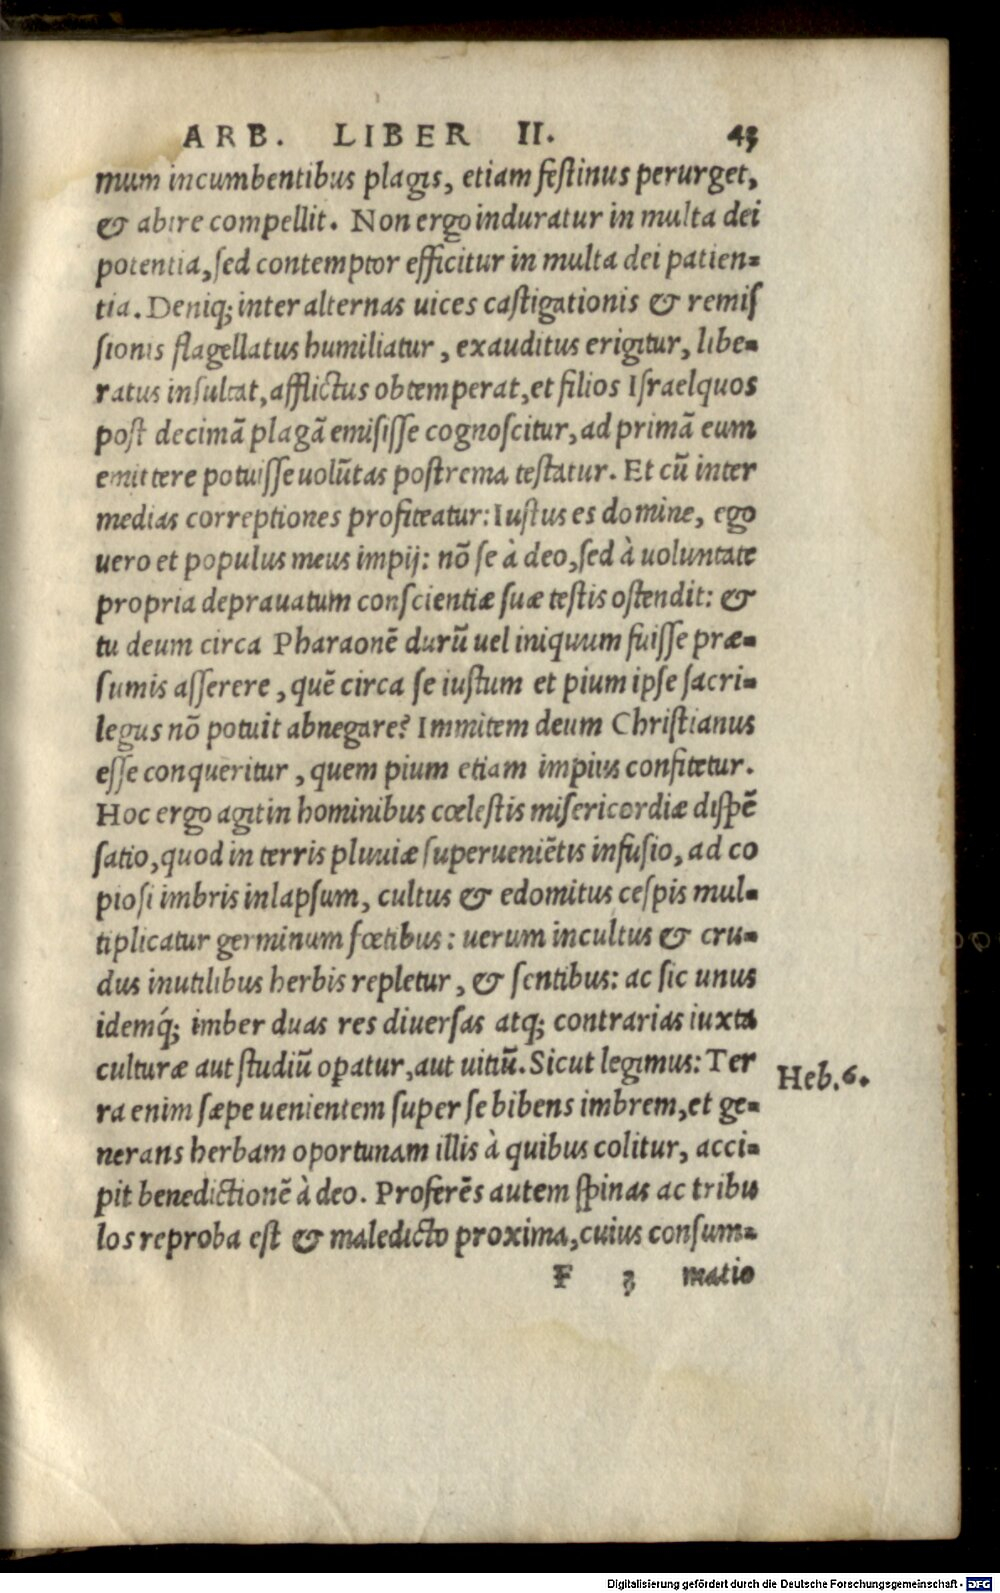 ARB. LIBER II. 43
mum incumbentibus plagis, etiam festinus perurget,
& abire compellit. Non ergo induratur in multa dei
potentia, sed contemptor efficitur in multa dei patien=
tia. Deniq; inter alternas uices castigationis & remis
sionis flagellatus humiliatur, exauditus erigitur, libe=
ratus insultat, afflictus obtemperat, et filios Israel quos
post decimā plagā emisisse cognoscitur, ad primā eum
emittere potuisse uolūtas postrema testatur. Et cū inter
medias correptiones profiteatur: Iustus es domine, ego
uero et populus meus impij: nō se à deo, sed à uoluntate
propria deprauatum conscientiæ suæ testis ostendit: &
tu deum circa Pharaonē durū uel iniquum fuisse præ=
sumis asserere, quē circa se iustum et pium ipse sacri=
legus nō potuit abnegare? Immitem deum Christianus
esse conqueritur, quem pium etiam impius confitetur.
Hoc ergo agit in hominibus cœlestis misericordiæ dispē
satio, quod in terris pluuiæ superueniētis infusio, ad co
piosi imbris inlapsum, cultus & edomitus cespis mul=
tiplicatur germinum fœtibus: uerum incultus & cru=
dus inutilibus herbis repletur, & sentibus: ac sic unus
idemq́; imber duas res diuersas atq; contrarias iuxta
culturæ aut studiū oꝑatur, aut uitiū. Sicut legimus: Ter
ra enim sæpe uenientem super se bibens imbrem, et ge=
nerans herbam oportunam illis à quibus colitur, acci=
pit benedictionē à deo. Proferēs autem spinas ac tribu
los reproba est & maledicto proxima, cuius consum=
F 3 matio
Heb. 6.
Digitalisierung gefördert durch die Deutsche Forschungsgemeinschaft - DFG